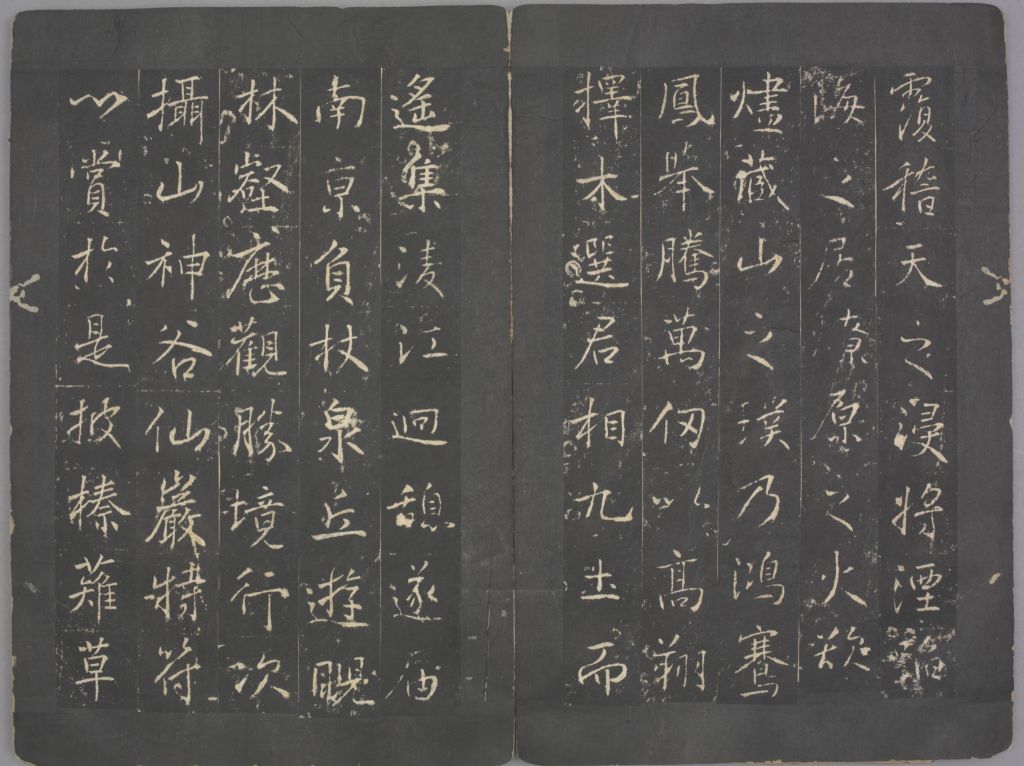 覆稽天之浸將湮
海之居燎原之火欻
燼藏山之璞乃鴻鶱
鳳舉騰萬仞以高翔
擇木選君相九土而
遙集淩江迥憩遂届
南京負杖泉丘遊睍
林壑歷觀勝境行次
攝山神谷仙巖特符
心賞於是披榛薙草